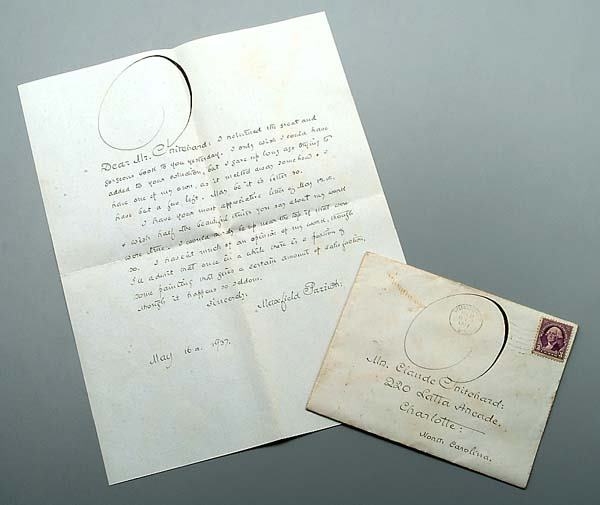 Dear Mr. Pritchard: I returned the great and
gorgeous book to you yesterday. I only wish I could have
added to your collection, but I gave up long ago trying to
have one of my own, as it melted away somehow. I
have but a few left. May be it is better so.
I have your most appreciative letter of May 12th.
I wish half the beautiful things you say about my work
were true. I would be up near the top if that were
so. I haven't much of an opinion of my work, though
I'll admit that once in a while there is a fraction of
some painting that gives a certain amount of satisfaction,
though it happens so seldom.
Sincerely,
Maxfield Parrish:
May 16th. 1937.
Mr. Claude Pritchard:
220 Latta Arcade.
Charlotte:
North Carolina.